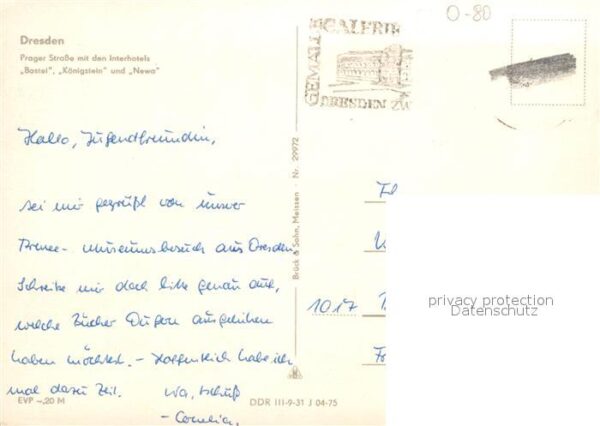 O-80
Dresden
Prager Straße mit den Interhotels
„Bastei", „Königstein" und „Newa"
GEMÄLDEGALERIE
DRESDEN ZW
Hallo, Jugendfreundin,
sei mir gegrüßt von unser
Museumsbesuch aus Dresden
Schreibe mir doch bitte genau auf,
welche Bücher Du gern ausgeliehen
haben möchtest. - Hoffentlich habe ich
mal dazu Zeit. Na, tschüß
- Cornelia.
Brück & Sohn, Meissen - Nr. 29972
1017
privacy protection
Datenschutz
EVP -,20 M
DDR III-9-31 J 04-75